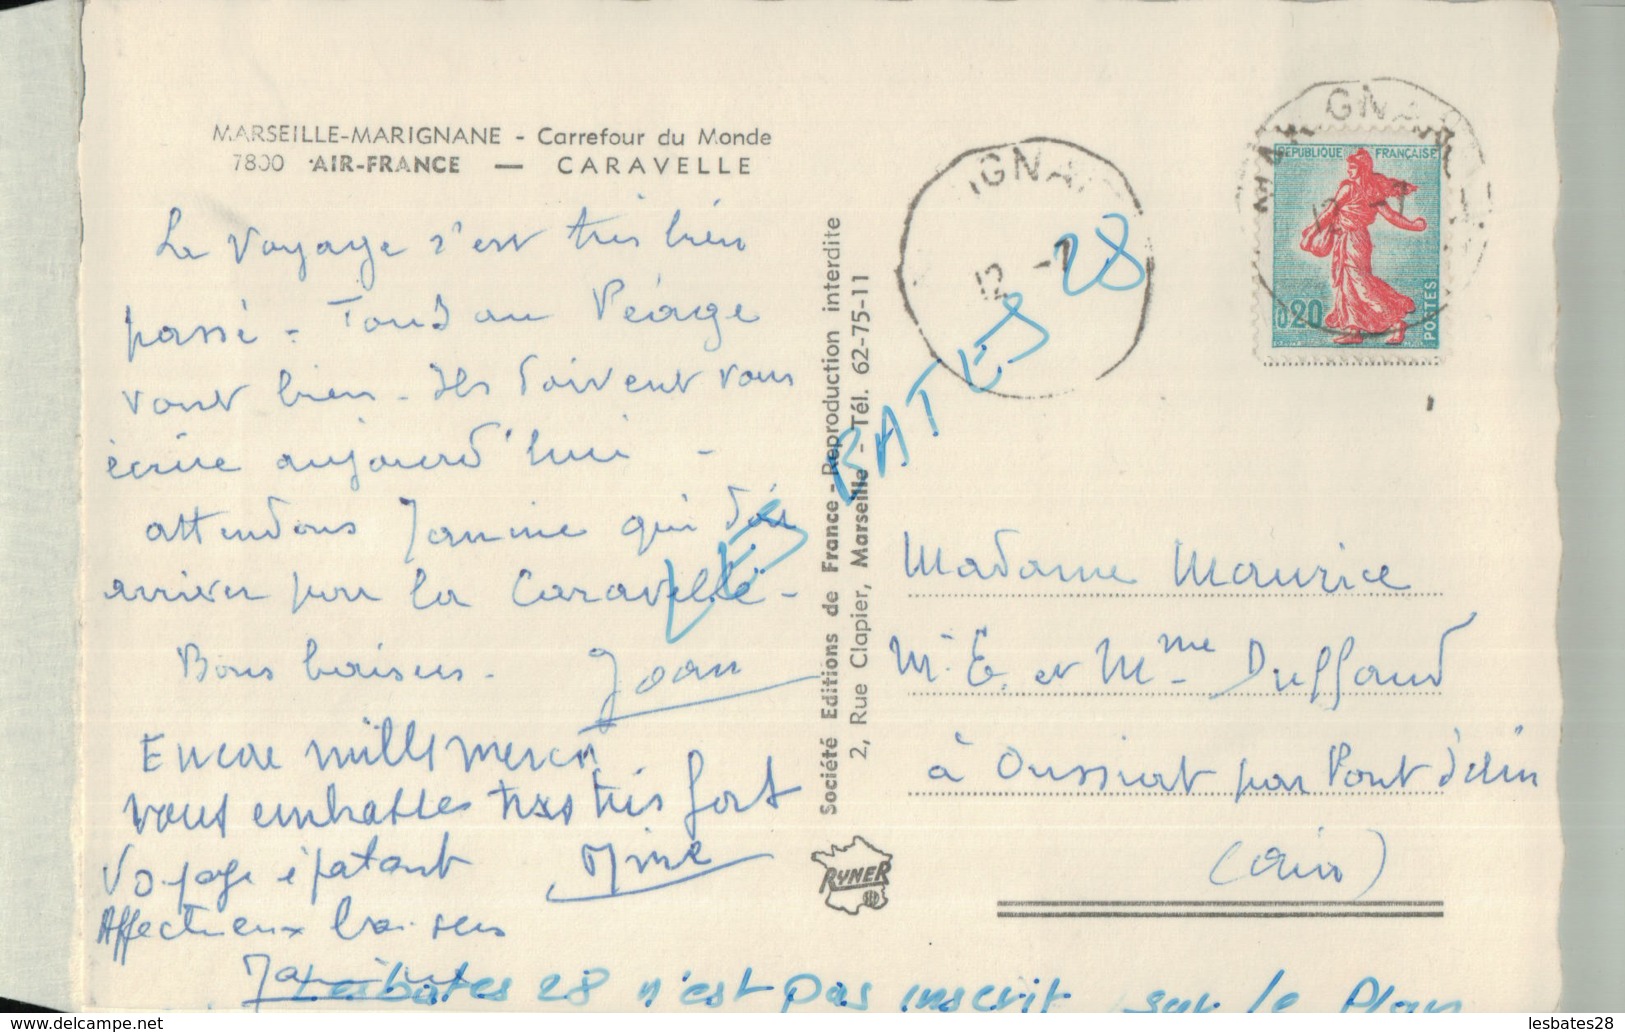 MARSEILLE-MARIGNANE - Carrefour du Monde
7800 AIR-FRANCE — CARAVELLE
Le voyage s'est très bien
passé - Tous au Péage
vont bien - Ils doivent vous
écrire aujourd'hui -
attendons Janine qui doit
arriver par la Caravelle -
Bons baisers - Joan
Encore mille merci
vous embrasse très très fort
Voyage épatant
Affectueux baisers
Société Editions de France - Reproduction interdite
2, Rue Clapier, Marseille - Tél. 62-75-11
RYNER
IGNA
12 -7
GNA
12 -7
REPUBLIQUE FRANÇAISE
0,20
POSTES
Madame Maurice
M. E. et Mme Duffaud
à Oussiat par Pont d'Ain
(Ain)
LES BATES 28
Lesbates 28 n'est pas inscrit sur le Plan
delcampe.net
lesbates28